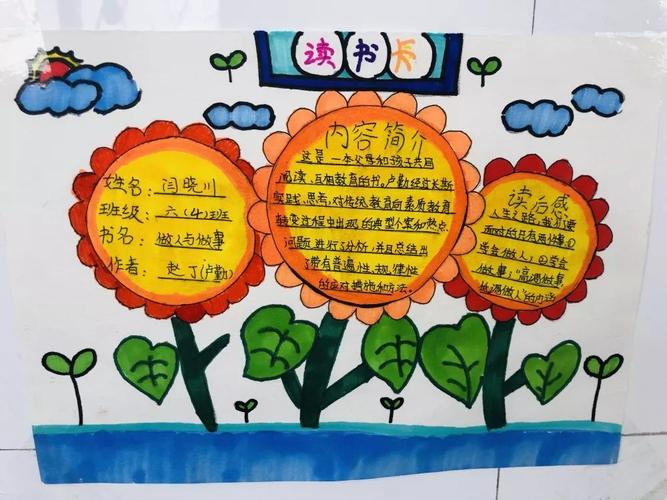 读书卡
姓名：闫晓川
班级：六（4）班
书名：做人与做事
作者：赵丁（卢勤）
内容简介
这是一本父母和孩子共同
阅读、互相教育的书，卢勤经过长期
实践、思考，对传统教育向素质教育
转变过程中出现的典型个案和热点
问题进行了分析，并且总结出
了带有普遍性、规律性
的应对措施和方法。
读后感
人生之路，我们要
面对的只有两件事①
学会做人；②学会
做事；“高调做事
低调做人”的内涵